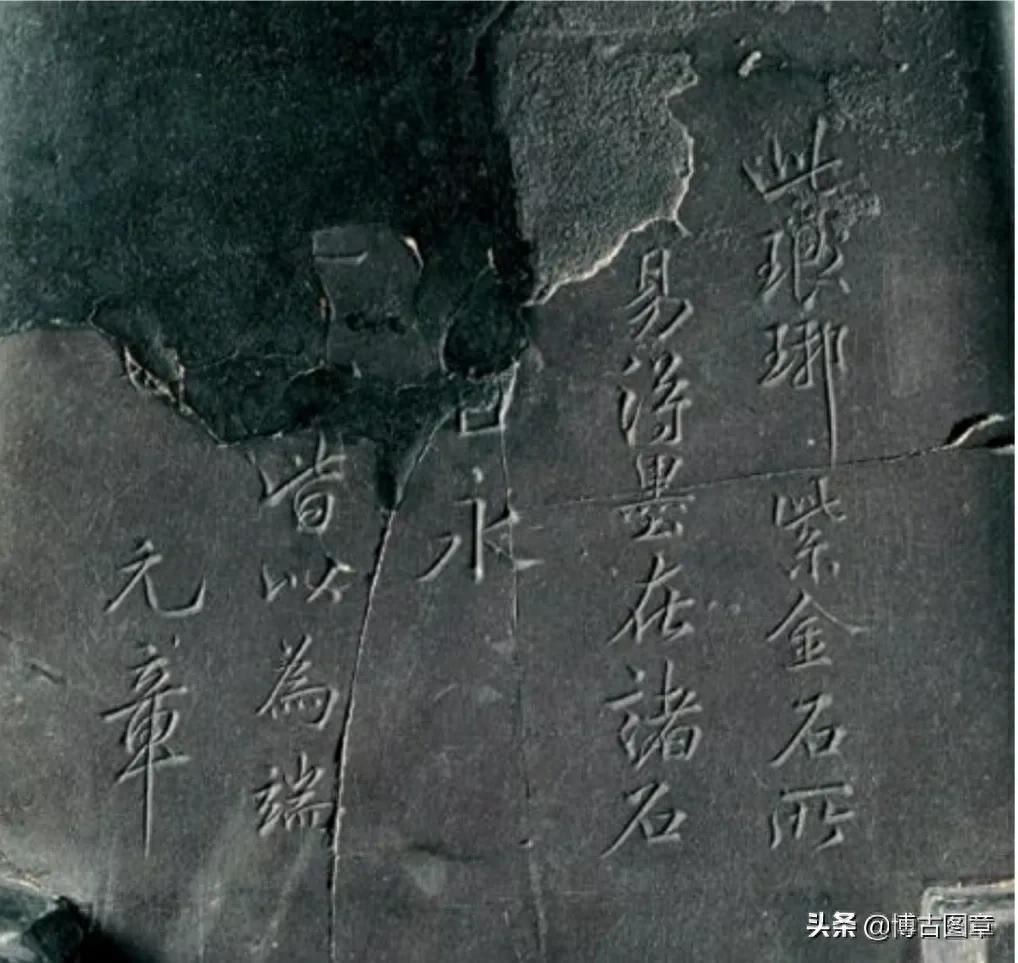 此琅琊紫金石所
易得墨在諸石
永
皆以為端
元章
头条 @博古图章